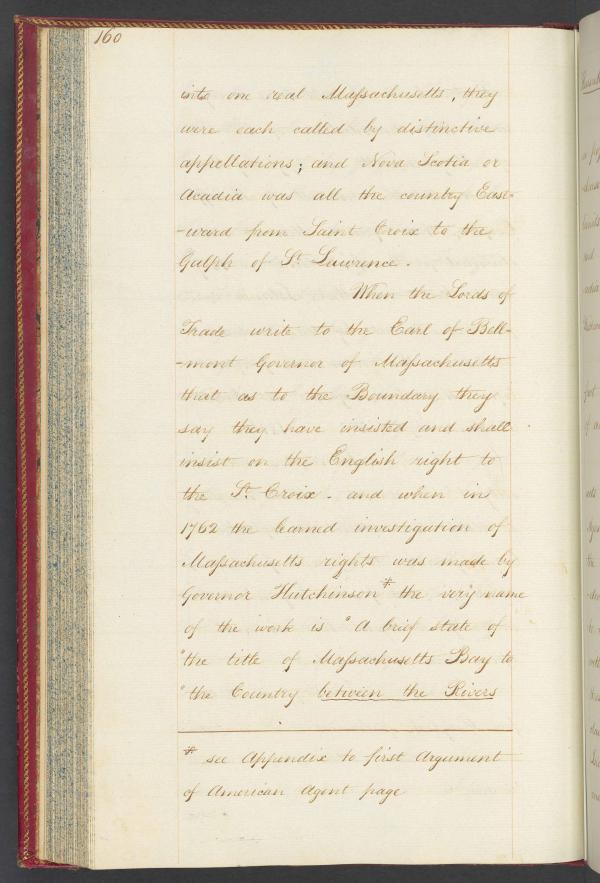 160
into one real Maſsachusetts, they
were each called by distinctive
appellations; and Nova Scotia or
Acadia was all the country East-
-ward from Saint Croix to the
Gulph of St. Lawrence.
When the Lords of
Trade write to the Earl of Bell-
-mont Governor of Maſsachusetts
that as to the Boundary they
say they have insisted and shall
insist on the English right to
the St. Croix - and when in
1762 the learned investigation of
Maſsachusetts rights was made by
Governor Hutchinson # the very name
of the work is "A brief state of
"the title of Maſsachusetts Bay to
"the Country between the Rivers
# see Appendix to first Argument
of American Agent page